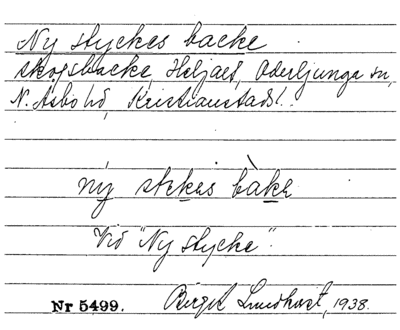 Ny styckes backe
skogsbacke, Heljalt, Oderljunga sn,
N. Åsbo hd, Kristianstads l.
ný stekas bàka
Vid "Ny stycke".
Nr 5499. Birgit Lundkvist, 1938.